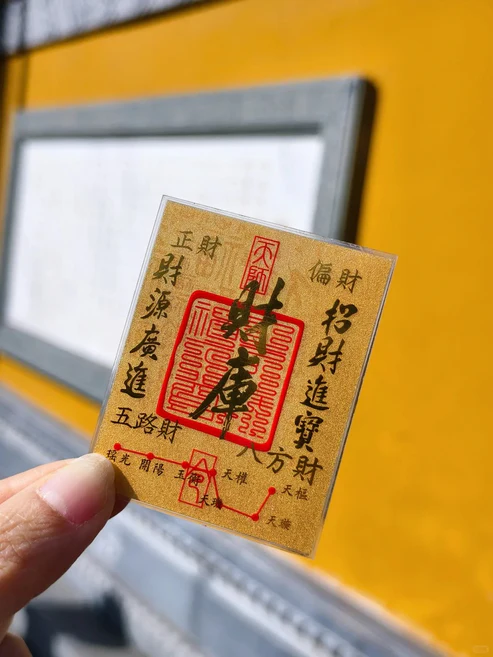 正財
天師
偏財
財源廣進
財庫
招財進寶
五路財
八方財
搖光
開陽
玉衡
天權
天璣
天樞
天璇